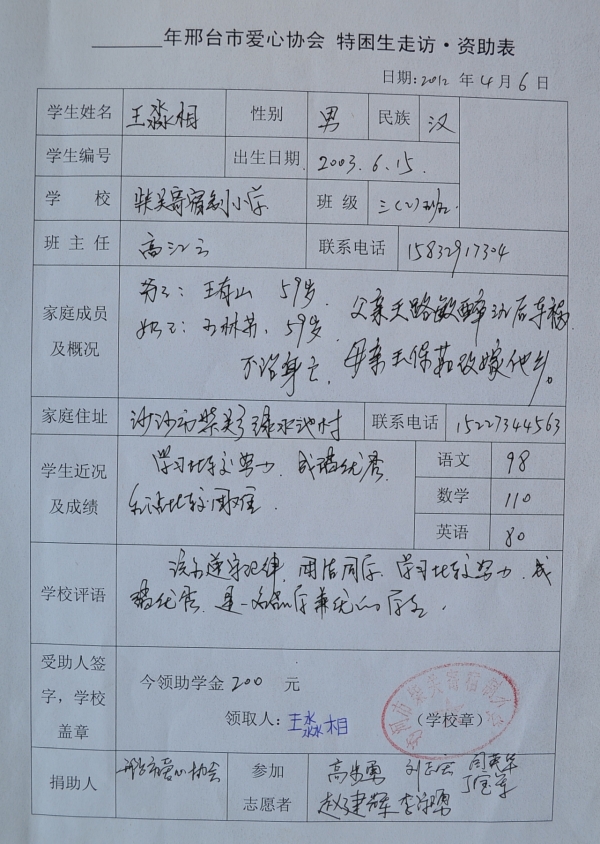 年邢台市爱心协会 特困生走访·资助表
日期:2012 年 4 月 6 日
学生姓名 王淼相 性别 男 民族 汉
学生编号 出生日期 2003.6.15.
学 校 柴关寄宿制小学 班 级 三(2)班
班 主 任 高江云 联系电话 15832917304
家庭成员及概况
爷爷: 王春山 59岁.
奶奶: 59岁
父亲王路敏醉酒后车祸
不治身亡. 母亲王保茹改嫁他乡。
家庭住址 沙河市柴关乡绿水池村 联系电话 15227344563
学生近况及成绩
学习比较努力, 成绩优秀,
生活比较困难
语文 98
数学 110
英语 80
学校评语
该生遵守纪律, 团结同学, 学习比较努力, 成
绩优秀, 是一名品学兼优的学生.
受助人签字,学校盖章
今领助学金 200 元
领取人: 王淼相 (学校章)
沙河市柴关寄宿制小学
捐助人 邢台市爱心协会
参加志愿者 高步勇
赵建辉